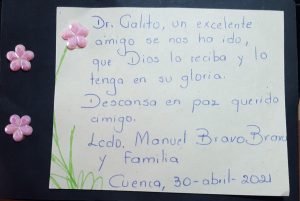 Dr. Galito, un excelente
amigo se nos ha ido,
que Dios la reciba y lo
tenga en su gloria.
Descansa en paz querido
amigo.
Lcdo. Manuel Bravo Bravo
y Familia
Cuenca, 30-abril-2021